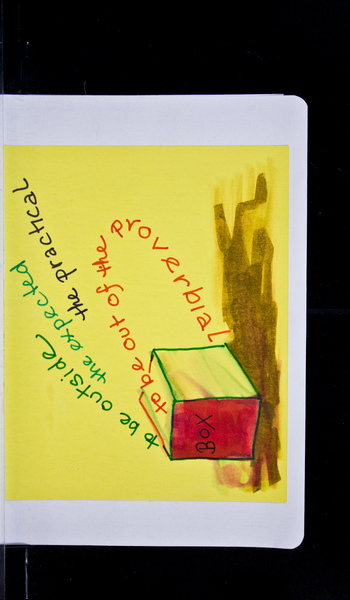 to be outside
the expected
the practical
to be out of the proverbial
BOX